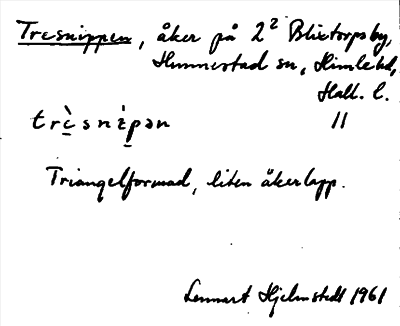 Tresnippen, åker på 2² Blixtorps by,
Hunnestad sn, Himle hd,
Hall. l.
trɛ̀snɛ́pən 11
Triangelformad, liten åkerlapp.
Lennart Hjelmstedt 1961